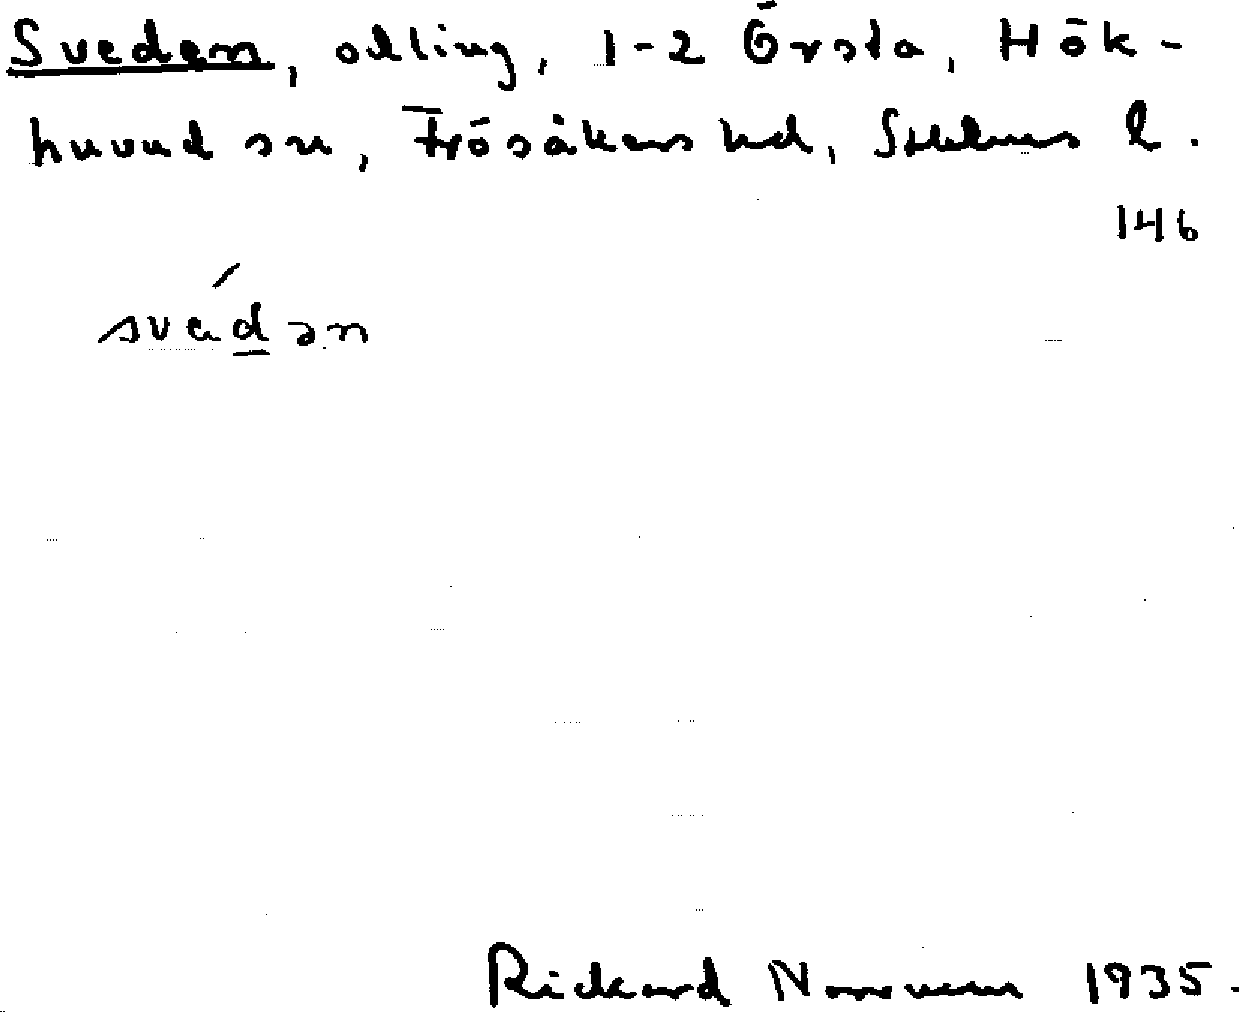 Sveden, odling, 1-2 Örsta, Hök-
huvud sn, Frösåkers hd, Sthlms l.
146
svedən
Rickard 1935.